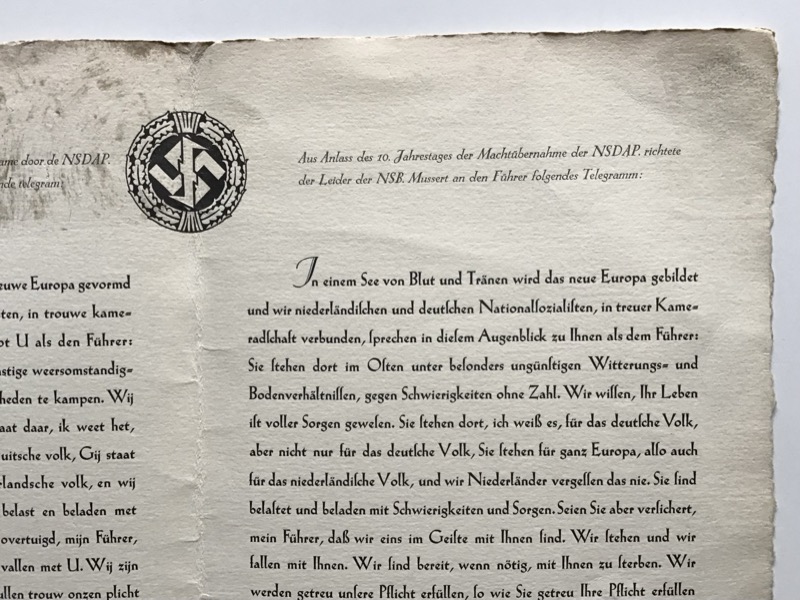 ame door de NSDAP.
nde telegram:
euwe Europa gevormd
ten, in trouwe kame=
ot U als den Führer:
nstige weersomstandig=
heden te kampen. Wij
aat daar, ik weet het,
uitsche volk, Gij staat
rlandsche volk, en wij
belast en beladen met
overtuigd, mijn Führer,
vallen met U. Wij zijn
ullen trouw onzen plicht
Aus Anlass des 10. Jahrestages der Machtübernahme der NSDAP. richtete
der Leider der NSB. Mussert an den Führer folgendes Telegramm:
In einem See von Blut und Tränen wird das neue Europa gebildet
und wir niederländiſchen und deutſchen Nationalſozialiſten, in treuer Kame=
radſchaft verbunden, ſprechen in dieſem Augenblick zu Ihnen als dem Führer:
Sie ſtehen dort im Oſten unter beſonders ungünſtigen Witterungs= und
Bodenverhältniſſen, gegen Schwierigkeiten ohne Zahl. Wir wiſſen, Ihr Leben
iſt voller Sorgen geweſen. Sie ſtehen dort, ich weiß es, für das deutſche Volk,
aber nicht nur für das deutſche Volk, Sie ſtehen für ganz Europa, alſo auch
für das niederländiſche Volk, und wir Niederländer vergeſſen das nie. Sie ſind
belaſtet und beladen mit Schwierigkeiten und Sorgen. Seien Sie aber verſichert,
mein Führer, daß wir eins im Geiſte mit Ihnen ſind. Wir ſtehen und wir
fallen mit Ihnen. Wir ſind bereit, wenn nötig, mit Ihnen zu ſterben. Wir
werden getreu unſere Pflicht erfüllen, ſo wie Sie getreu Ihre Pflicht erfüllen